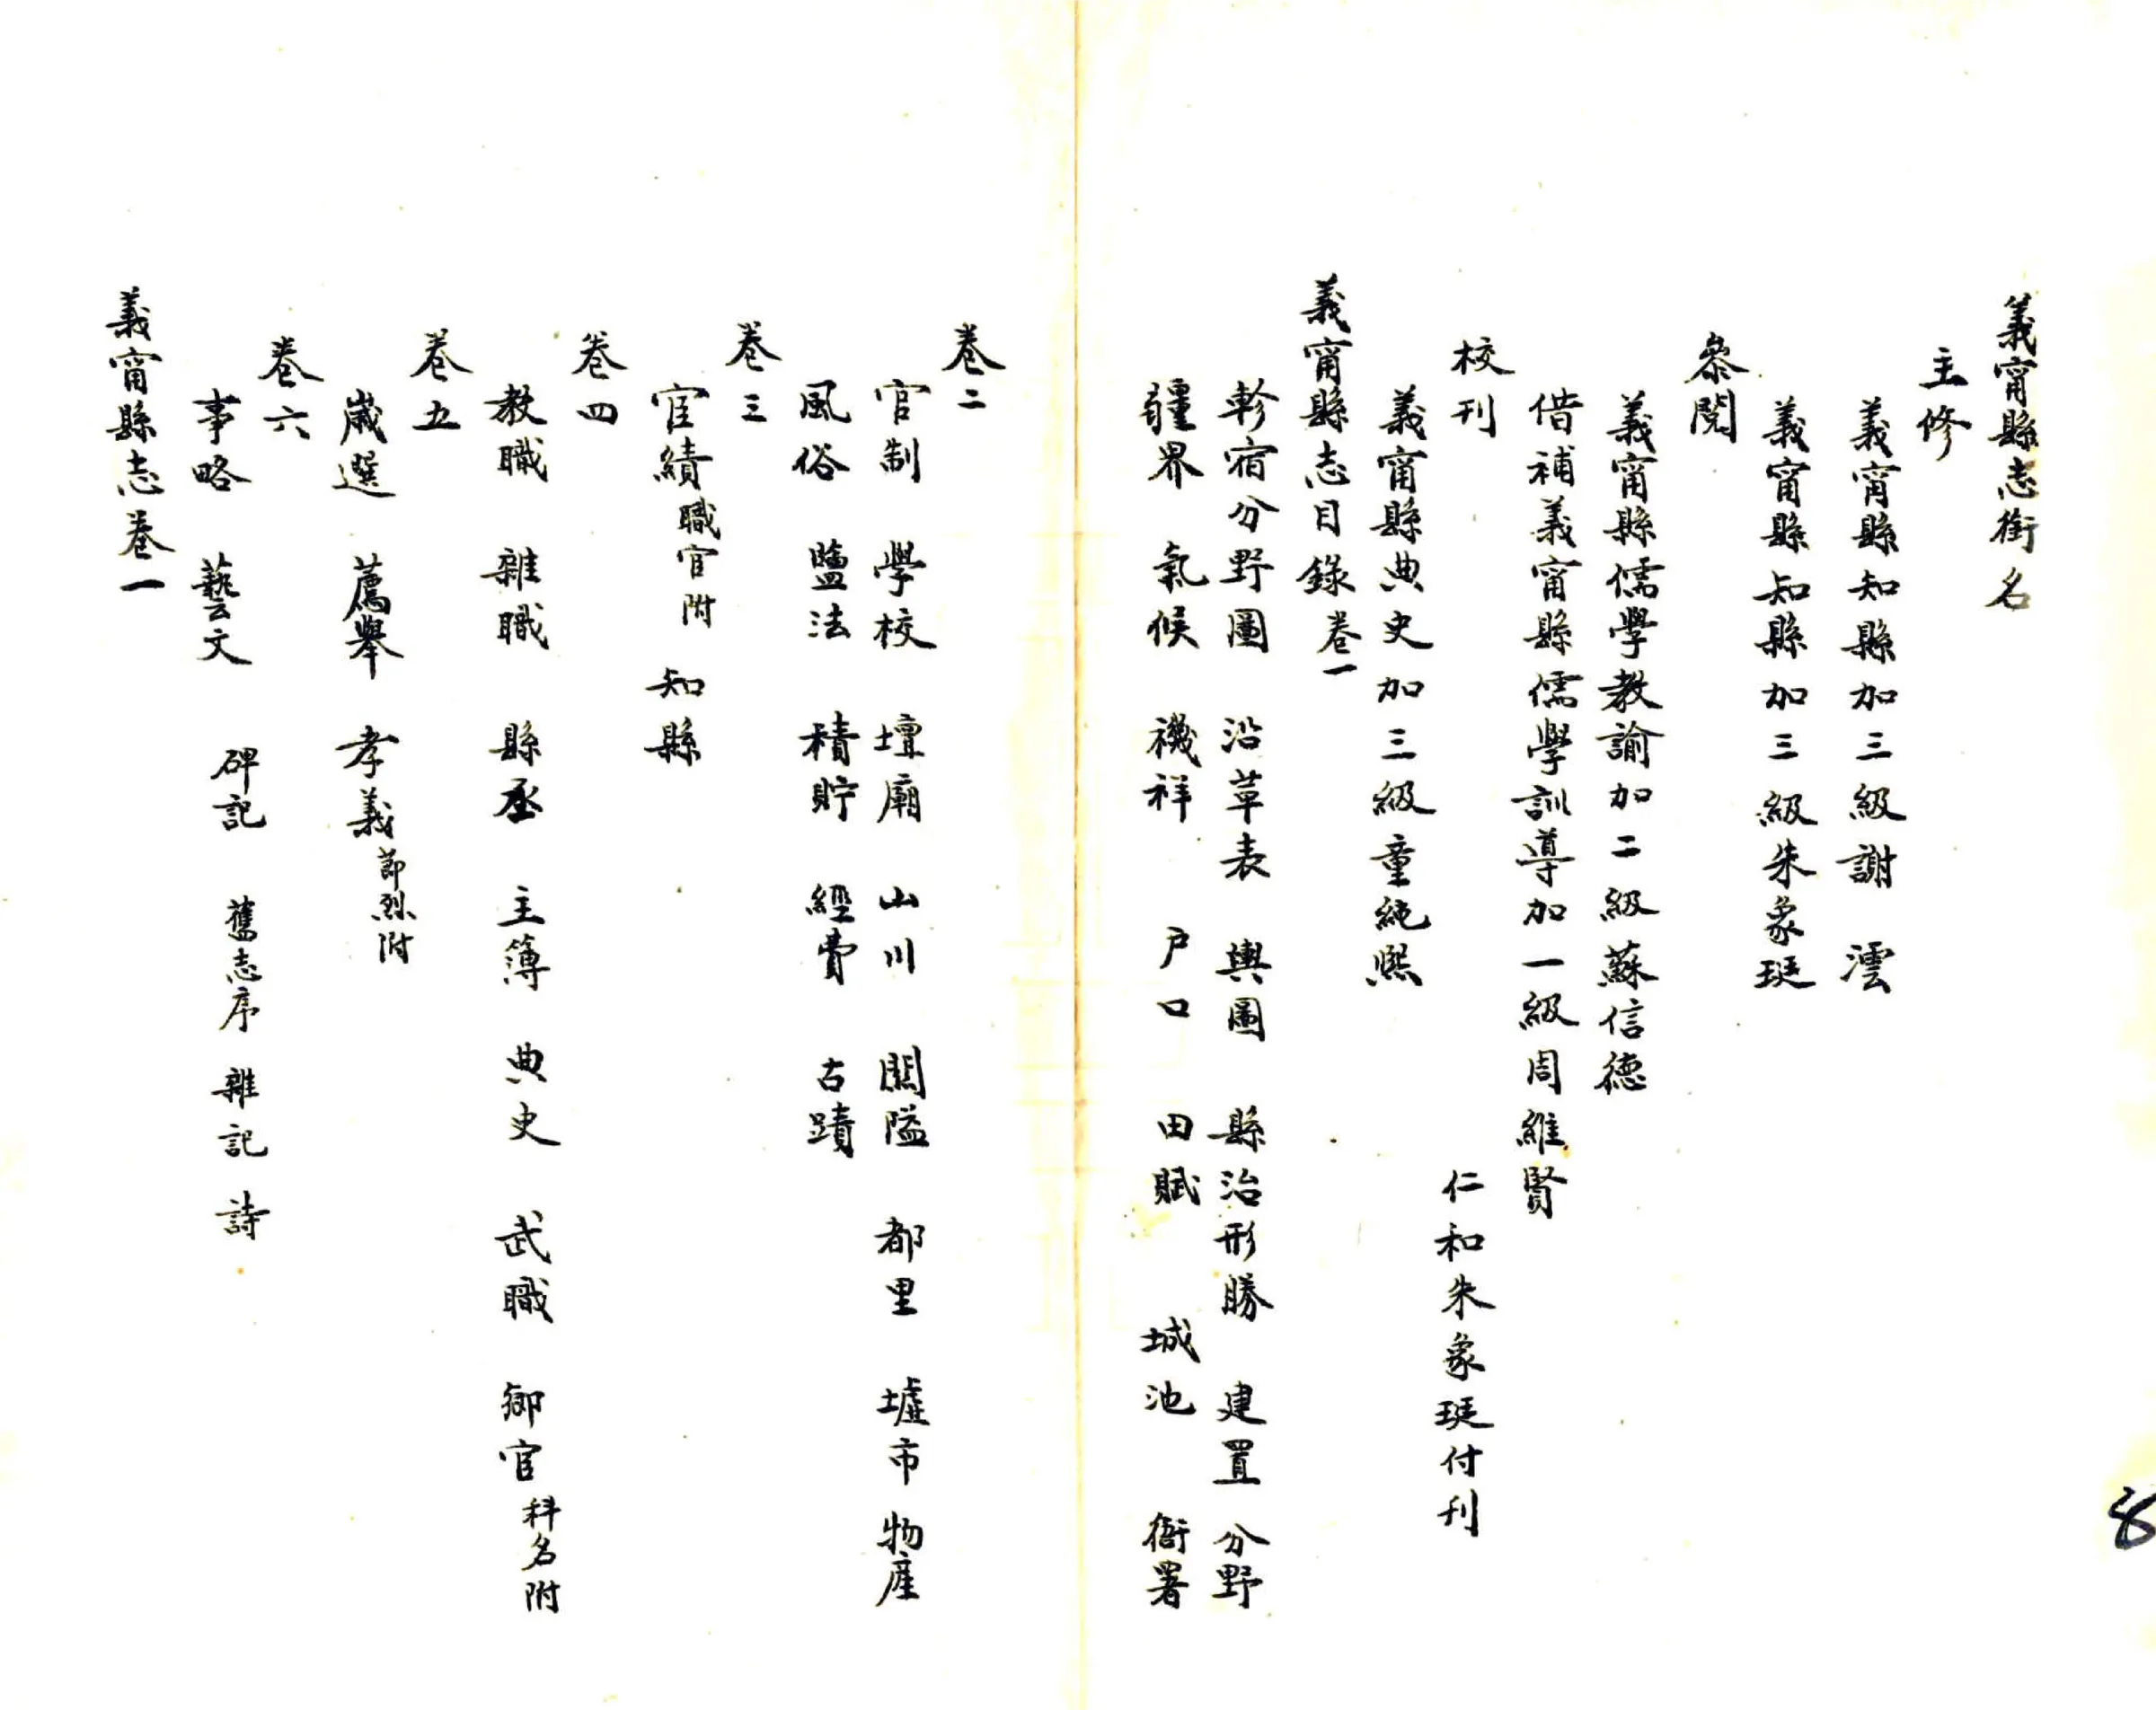 義甯縣志銜名
主修
義甯縣知縣加三級謝　澐
義甯縣知縣加三級朱象珽
叅閱
義甯縣儒學教諭加二級蘇信德
借補義甯縣儒學訓導加一級周維賢
校刊　仁和朱象珽付刊
義甯縣典史加三級童純熙
義甯縣志目錄卷一
軫宿分野圖　沿革表　輿圖　縣治形勝　建置　分野
疆界　氣候　禨祥　户口　田賦　城池　衙署
卷二
官制　學校　壇廟　山川　關隘　都里　墟市　物產
風俗　鹽法　積貯　經費　古蹟
卷三
宦績職官附　知縣
卷四
教職　雜職　縣丞　主簿　典史　武職　鄉官科名附
卷五
歲選　薦舉　孝義節烈附
卷六
事略　藝文　碑記　舊志序　雜記　詩
義甯縣志卷一
8